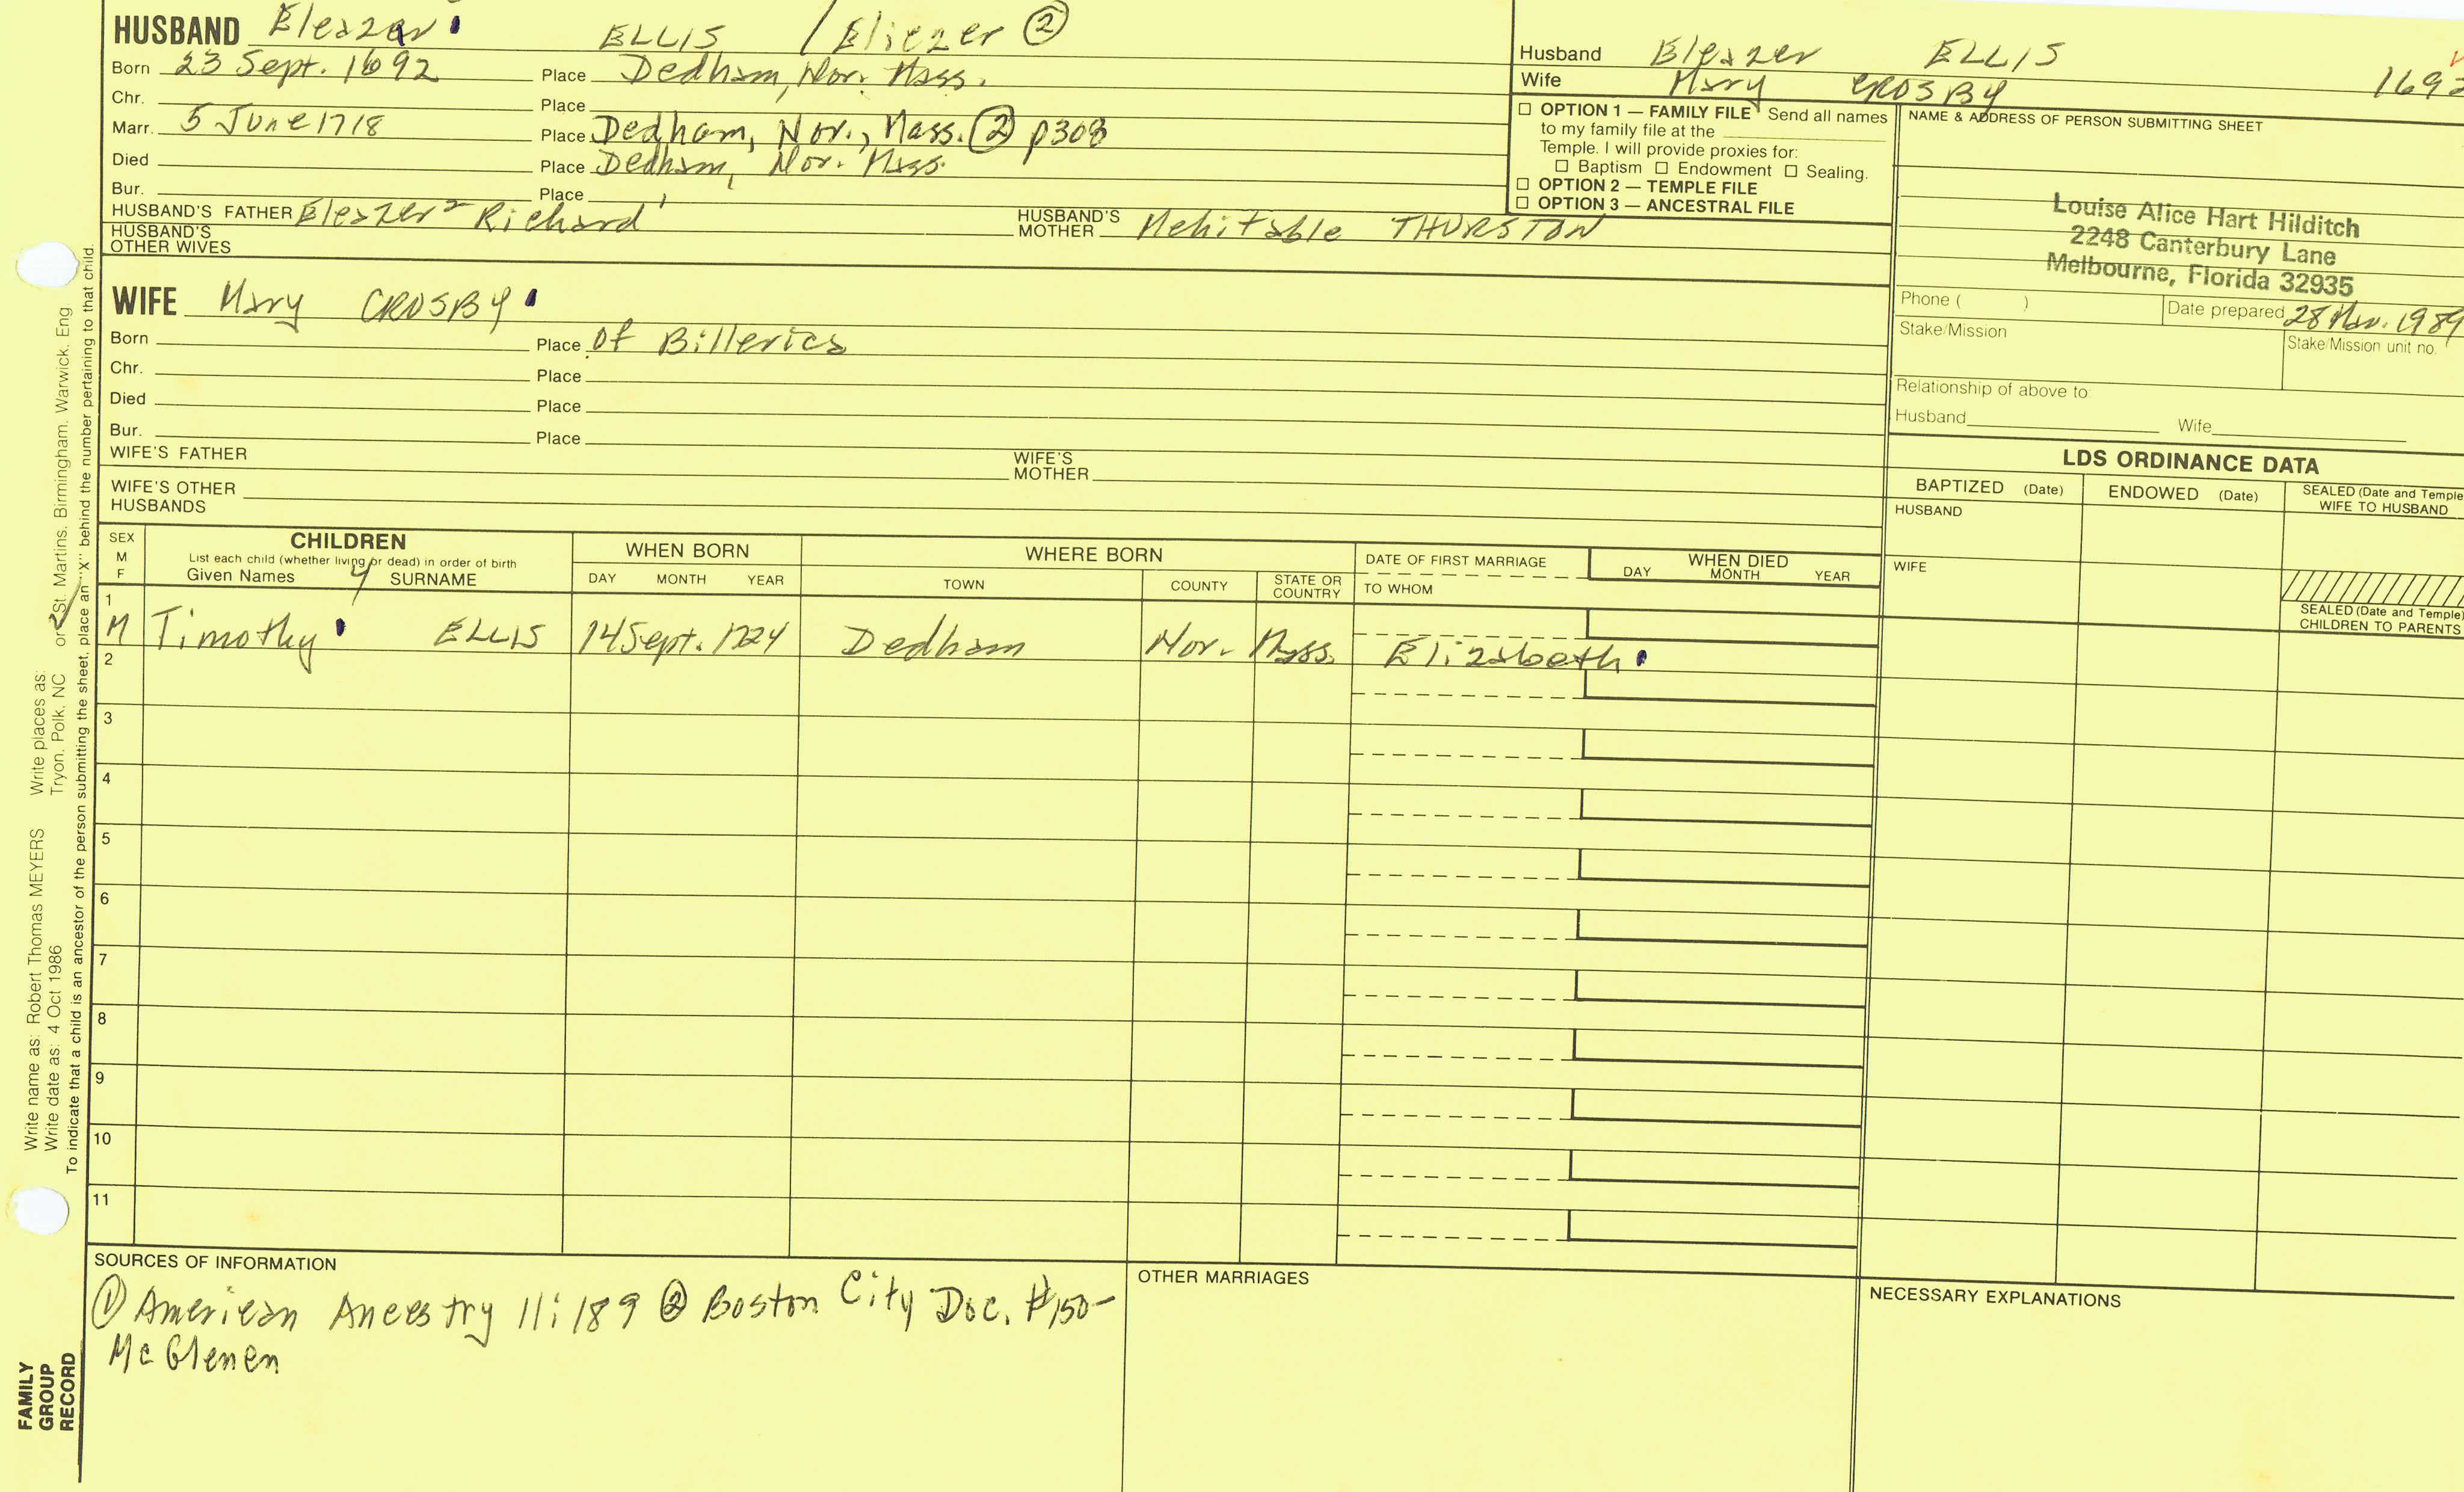 HUSBAND Eleazer ELLIS / Eliezer ②
Born 23 Sept. 1692 Place Dedham, Nor. Mass.
Chr. Place
Marr. 5 June 1718 Place Dedham, Nor., Mass. ② p308
Died Place Dedham, Nor. Mass.
Bur. Place
HUSBAND'S FATHER Eleazer² Richard¹ HUSBAND'S MOTHER Mehitable THURSTON
HUSBAND'S OTHER WIVES
Husband Eleazer ELLIS
Wife Mary CROSBY
☐ OPTION 1 — FAMILY FILE Send all names
to my family file at the
Temple. I will provide proxies for:
☐ Baptism ☐ Endowment ☐ Sealing.
☐ OPTION 2 — TEMPLE FILE
☐ OPTION 3 — ANCESTRAL FILE
NAME & ADDRESS OF PERSON SUBMITTING SHEET
Louise Alice Hart Hilditch
2248 Canterbury Lane
Melbourne, Florida 32935
Phone ( ) Date prepared 28 1989
Stake/Mission Stake/Mission unit no.
Relationship of above to
Husband Wife
WIFE Mary CROSBY
Born Place of Billerica
Chr. Place
Died Place
Bur. Place
WIFE'S FATHER WIFE'S MOTHER
WIFE'S OTHER HUSBANDS
LDS ORDINANCE DATA
BAPTIZED (Date) ENDOWED (Date) SEALED (Date and Temple
WIFE TO HUSBAND
HUSBAND
WIFE
SEALED (Date and Temple)
CHILDREN TO PARENTS
SEX
M
F
CHILDREN
List each child (whether living or dead) in order of birth
Given Names SURNAME
WHEN BORN
DAY MONTH YEAR
WHERE BORN
TOWN COUNTY STATE OR COUNTRY
DATE OF FIRST MARRIAGE
TO WHOM
WHEN DIED
DAY MONTH YEAR
1
M Timothy ELLIS 14 Sept. 1724 Dedham Nor. Mass. Elizabeth
2
3
4
5
6
7
8
9
10
11
SOURCES OF INFORMATION
① American Ancestry 11:189 ② Boston City Doc. #150-
McGlenen
OTHER MARRIAGES
NECESSARY EXPLANATIONS
Write name as: Robert Thomas MEYERS Write places as:
Write date as: 4 Oct 1986 Tryon, Polk, NC or St. Martins, Birmingham, Warwick, Eng
To indicate that a child is an ancestor of the person submitting the sheet, place an "X" behind the number pertaining to that child.
FAMILY
GROUP
RECORD